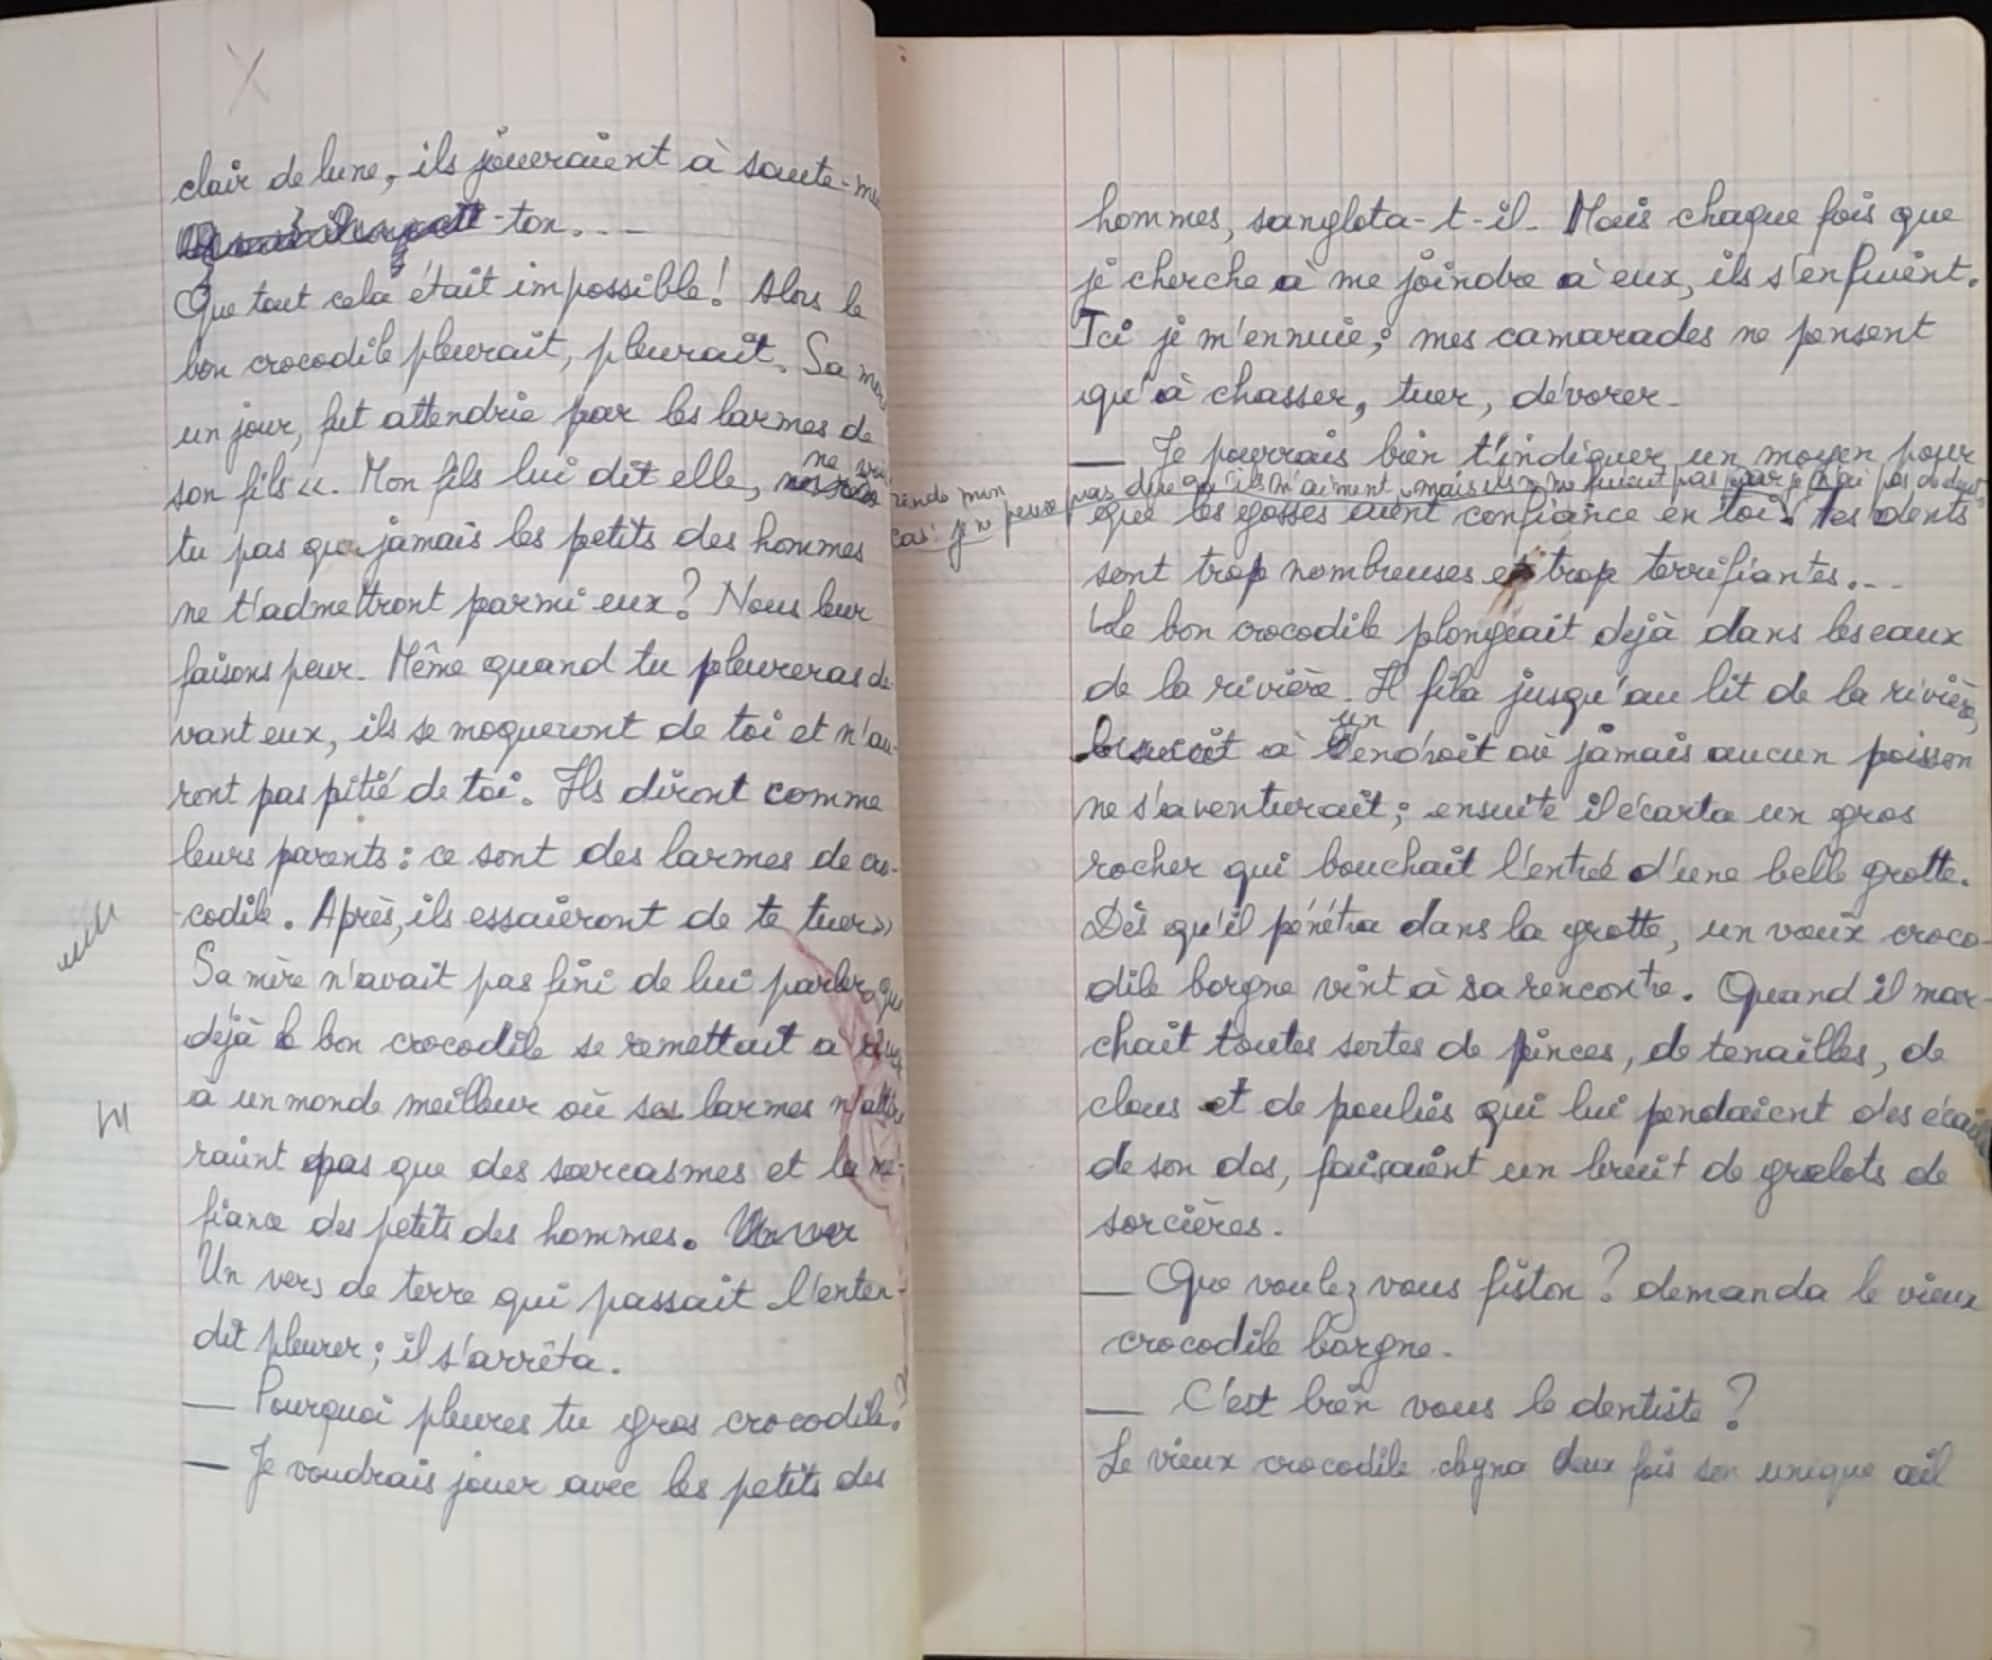 clair de lune, ils joueraient à saute-mou
-ton...
Que tout cela était impossible! Alors le
bon crocodile pleurait, pleurait. Sa mère
un jour, fut attendrie par les larmes de
son fils «. Mon fils lui dit elle, ne vois
tu pas que jamais les petits des hommes
ne t'admettront parmi eux? Nous leur
faisons peur. Même quand tu pleureras de-
vant eux, ils se moqueront de toi et n'au-
ront pas pitié de toi. Ils diront comme
leurs parents: ce sont des larmes de cro-
-codile. Après, ils essaieront de te tuer»
Sa mère n'avait pas fini de lui parler, que
déjà le bon crocodile se remettait à rêver
à un monde meilleur où ses larmes n'atti
raient pas que des sarcasmes et la mé-
fiance des petits des hommes.
Un vers de terre qui passait l'enten-
dit pleurer; il s'arrêta.
— Pourquoi pleures tu gros crocodile?
— Je voudrais jouer avec les petits des
hommes, sanglota-t-il. Mais chaque fois que
je cherche à me joindre à eux, ils s'enfuient.
Ici je m'ennuie; mes camarades ne pensent
qu'à chasser, tuer, dévorer.
— Je pourrais bien t'indiquer un moyen pour
mon
cas: je ne peux pas dire qu'ils m'aiment, mais ils ne me fuient pas car je n'ai pas de dents
que les gosses aient confiance en toi. Tes dents
sont trop nombreuses et trop terrifiantes...
Le bon crocodile plongeait déjà dans les eaux
de la rivière. Il fila jusqu'au lit de la rivière,
à un endroit où jamais aucun poisson
ne s'aventurait; ensuite il écarta un gros
rocher qui bouchait l'entrée d'une belle grotte.
Dès qu'il pénétra dans la grotte, un vieux croco-
dile borgne vint à sa rencontre. Quand il mar-
chait toutes sortes de pinces, de tenailles, de
clous et de poulies qui lui pendaient des écailles
de son dos, faisaient un bruit de grelots de
sorcières.
— Que voulez vous fiston? demanda le vieux
crocodile borgne.
— C'est bien vous le dentiste?
Le vieux crocodile cligna deux fois son unique œil